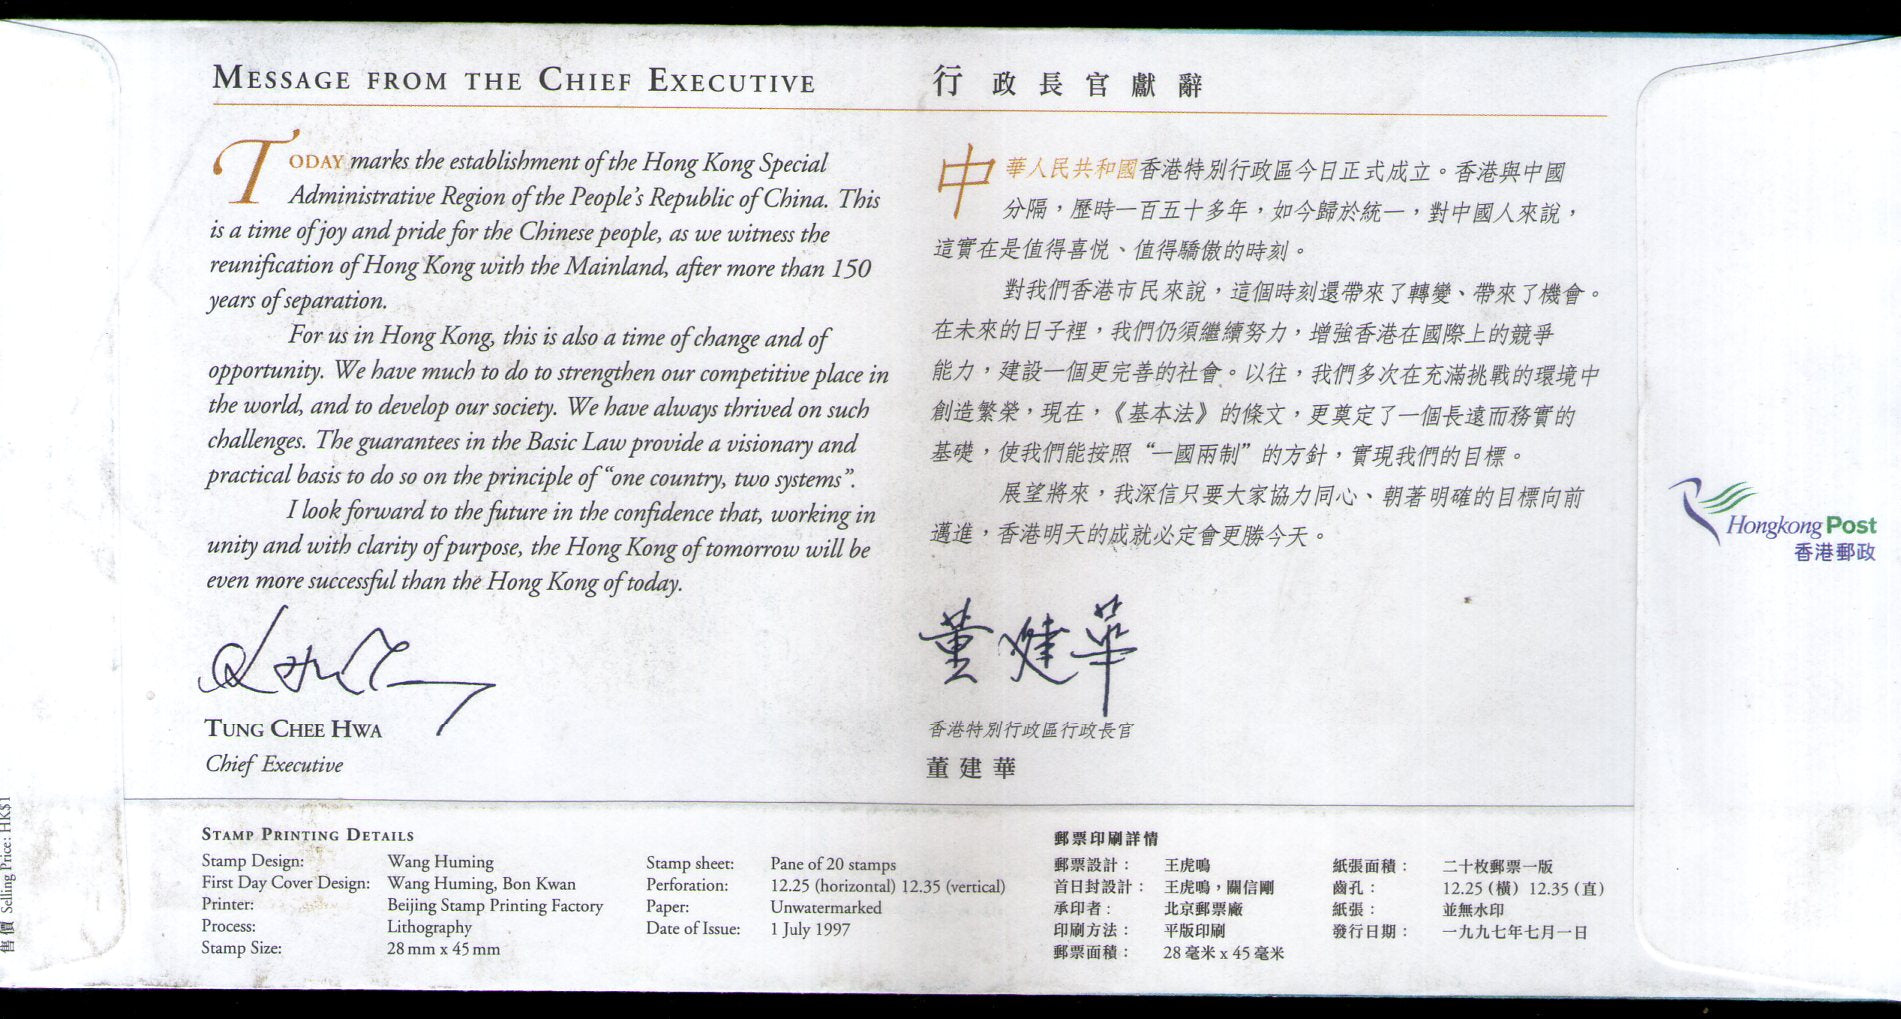 MESSAGE FROM THE CHIEF EXECUTIVE
TODAY marks the establishment of the Hong Kong Special
Administrative Region of the People's Republic of China. This
is a time of joy and pride for the Chinese people, as we witness the
reunification of Hong Kong with the Mainland, after more than 150
years of separation.
For us in Hong Kong, this is also a time of change and of
opportunity. We have much to do to strengthen our competitive place in
the world, and to develop our society. We have always thrived on such
challenges. The guarantees in the Basic Law provide a visionary and
practical basis to do so on the principle of “one country, two systems”.
I look forward to the future in the confidence that, working in
unity and with clarity of purpose, the Hong Kong of tomorrow will be
even more successful than the Hong Kong of today.
TUNG CHEE HWA
Chief Executive
行政長官獻辭
中華人民共和國香港特別行政區今日正式成立。香港與中國
分隔，歷時一百五十多年，如今歸於統一，對中國人來說，
這實在是值得喜悅、值得驕傲的時刻。
對我們香港市民來說，這個時刻還帶來了轉變、帶來了機會。
在未來的日子裡，我們仍須繼續努力，增強香港在國際上的競爭
能力，建設一個更完善的社會。以往，我們多次在充滿挑戰的環境中
創造繁榮，現在，《基本法》的條文，更奠定了一個長遠而務實的
基礎，使我們能按照“一國兩制”的方針，實現我們的目標。
展望將來，我深信只要大家協力同心、朝著明確的目標向前
邁進，香港明天的成就必定會更勝今天。
董建華
香港特別行政區行政長官
董建華
Hongkong Post
香港郵政
STAMP PRINTING DETAILS
Stamp Design: Wang Huming
First Day Cover Design: Wang Huming, Bon Kwan
Printer: Beijing Stamp Printing Factory
Process: Lithography
Stamp Size: 28 mm x 45 mm
Stamp sheet: Pane of 20 stamps
Perforation: 12.25 (horizontal) 12.35 (vertical)
Paper: Unwatermarked
Date of Issue: 1 July 1997
郵票印刷詳情
郵票設計： 王虎鳴
首日封設計： 王虎鳴，關信剛
承印者： 北京郵票廠
印刷方法： 平版印刷
郵票面積： 28 毫米 x 45 毫米
紙張面積： 二十枚郵票一版
齒孔： 12.25 (橫) 12.35 (直)
紙張： 並無水印
發行日期： 一九九七年七月一日
售價 Selling Price: HK$1